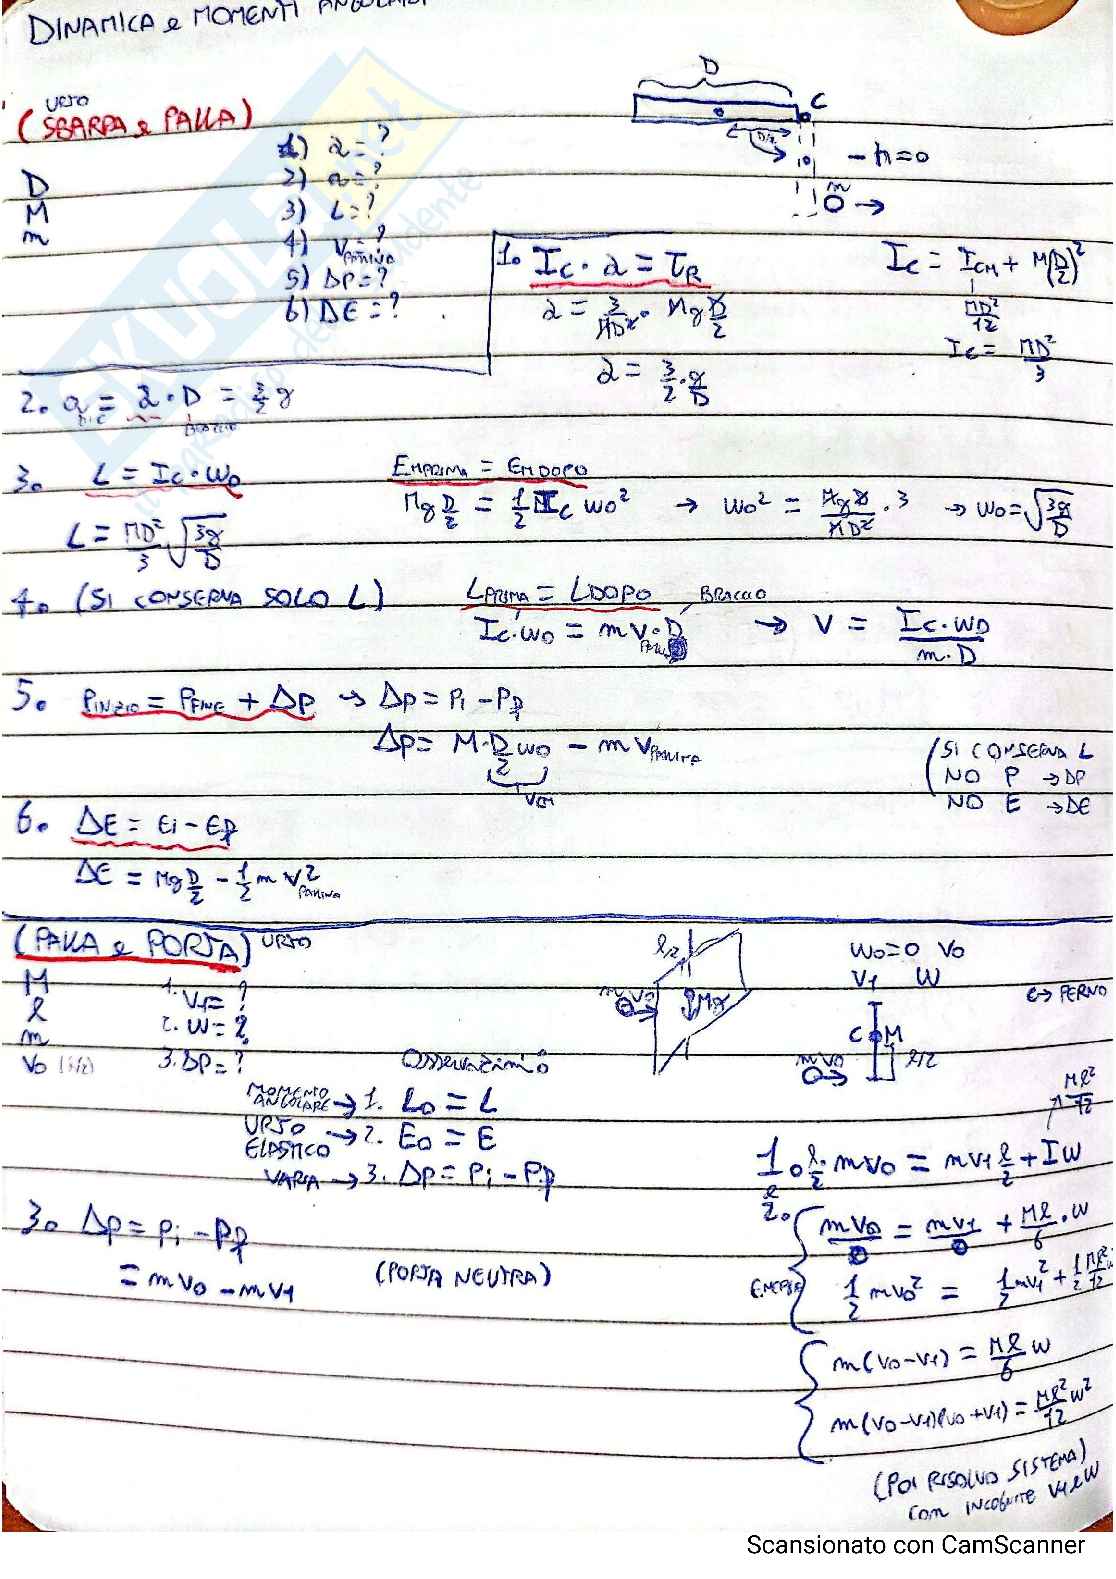 DINAMICA e MOMENTI ANGOLARI
URTO
(SBARRA e PALLA)
D
C
D/2
- h=0
m
D
M
m
1) α=?
2) a=?
3) L=?
4) V PALLINA=?
5) ΔP=?
6) ΔE=?
1. Ic · α = τR
α = 3/MD² · Mg D/2
α = 3/2 · g/D
Ic = ICM + M(D/2)²
MD²/12
Ic = MD²/3
2. a = α · D = 3/2 g
BRACCIO
3. L = Ic · ω0
L = MD²/3 √3g/D
EMPRIMA = EMDOPO
Mg D/2 = 1/2 Ic ω0² → ω0² = MgD/MD² · 3 → ω0 = √3g/D
4. (SI CONSERVA SOLO L)
LPRIMA = LDOPO
BRACCIO
Ic·ω0 = m V · D → V = Ic·ω0/m·D
5. PINIZIO = PFINE + ΔP → ΔP = Pi - Pf
ΔP = M·D/2 ω0 - m VPALLINA
VCM
(SI CONSERVA L
NO P → ΔP
NO E → ΔE
6. ΔE = Ei - Ef
ΔE = Mg D/2 - 1/2 m V² PALLINA
(PALLA e PORTA) URTO
M
l
m
V0
1. V1=?
2. ω=?
3. ΔP=?
l/2
m V0
Mg
ω0=0 V0
V1 ω
C→ PERNO
C M
l/2
m V0
Osservazioni:
MOMENTO ANGOLARE → 1. L0 = L
URTO ELASTICO → 2. E0 = E
VARIA → 3. ΔP = Pi - Pf
Ml²/12
1. l/2 · mV0 = mV1 l/2 + Iω
2. mV0 = mV1 + Ml/6 · ω
ENERGIA 1/2 mV0² = 1/2 mV1² + 1/2 Ml²/12 ω
m(V0-V1) = Ml/6 ω
m(V0-V1)(V0+V1) = Ml²/12 ω²
(POI RISOLVO SISTEMA)
COM INCOGNITE V1 e ω
3. ΔP = Pi - Pf
= mV0 - mV1
(PORTA NEUTRA)
Scansionato con CamScanner